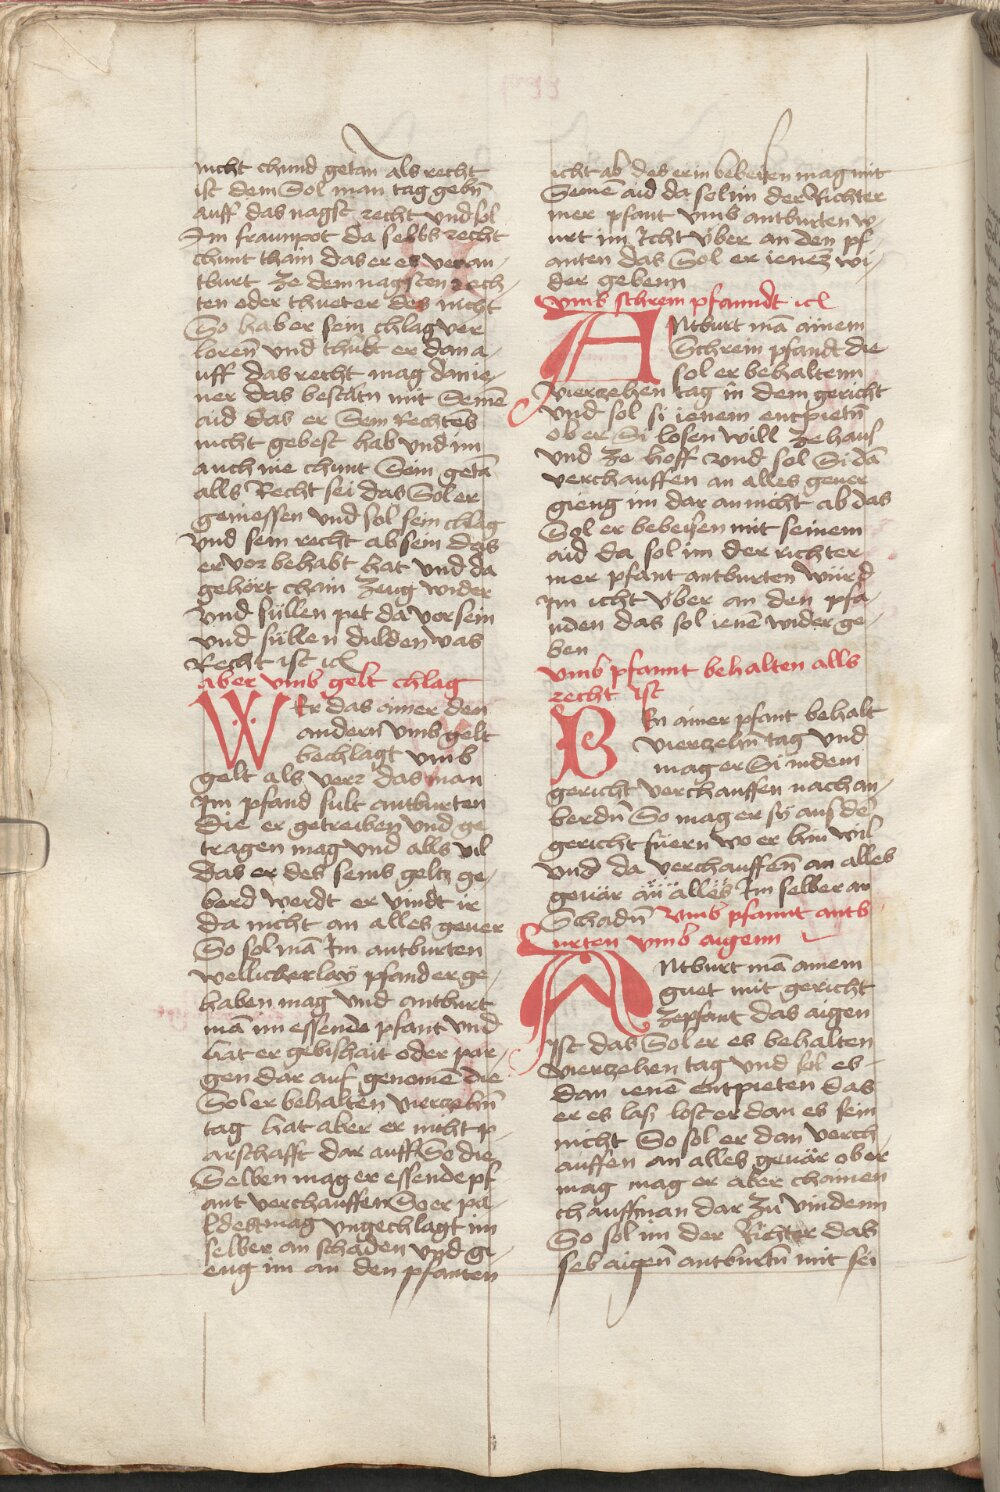 nicht chund getan als recht
ist dem Sol man tag gebn̄
auff das nagst recht vnd sol
Im fraunpot da selbs recht
chunt thain das er es veran-
tburt ze dem nagsten rech
ten oder thuet er des nicht
So hab er sein chlag ver
loren̄ vnd thuet er dan a-
uff das recht mag dan ie-
ner das bestätn mit Seinē
aid das er Sein Rechtēs
nicht gebest hab vnd im
auch nie chunt Sein getā
alls Recht sei das Sol er
geniessen vnd sol sein chlag
vnd sein recht ab sein das
er vor behabt hat vnd da
gehört chain zeug wider
vnd süllen pet da vor sein
vnd süllen dulden was
Recht ist ich
aber vmb gelt chlag
WEr das ainer den
andern vmb gelt
bechlagt vmb
gelt als verr das man
Im pfand sult antburten
die er getreiben vnd ge
tragen mag vnd alls vil
das er des seins geltz ge-
berd werdt er vindt ir
da nicht an alles geuer
So sol mā Im antburten
wellicherlay pfand er ge-
haben mag vnd antburt
mā im essende pfant vnd
hat er gebishait oder por-
gen dar auf genomē die
Sol er behalten vierzehn̄
tag hat aber er nicht p-
arschafft dar auff So die
Selben mag er essende pf
ant verchauffen So er pa-
ldest mag vngechlagt im
selber an schaden vnd gi-
eng im an den pfanten
icht ab des er in bebeisen mag mit
Seinē aid da sol im der Richter
mer pfant vmb antburten w-
urt im Icht über an den pf
anten das Sol er ienez wi-
der gebenn
vmb schrein pfanndt ich
ANtburt mā ainem
Schrein pfandt die
sol er behaltenn
vierzehen tag in dem gericht
vnd sol si ienem entpietn̄
ob er Si losen will ze haus
vnd ze hoff vnd sol Si dā
verchauffen an alles geuer
gieng im dar an nicht ab das
Sol er bebeisen mit seinem
aid da sol im der richter
mer pfant antburten würd
Im icht über an den pfa-
nden das sol ienē wider ge-
ben
vmb pfannt behalten alls
recht ist
BEn ainer pfant behalt
vierzehn̄ tag vnd
mag er Si in dem
gericht verchauffen nach an-
berdn̄ So mag er sy aus dē
gericht füern wo er hin wil
vnd da verchauffen̄ an alles
geuär an alles Im selber an
Schadn̄ vmb pfannt antb
urten vmb aigenn
ANtburt mā ainem
guet mit gericht
ze pfant das aigen
Ist das Sol er es behalten
vierzehen tag vnd sol es
dan ienē entpieten das
er es las lost er dan es sein
nicht So sol er dan verch-
auffen an alles geuär ob er
mag mag er aber chainen
chauffman dar zu vindenn
So sol im der Richter das
selb aigen̄ antburtn̄ mit sei